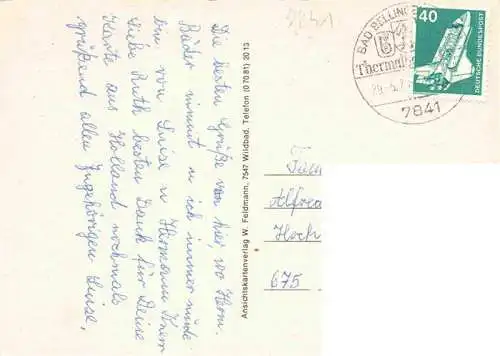 Die besten Grüße von hier, wo Herm.
Bäder nimmt u ich immer müde
bin von Luise u Hermann
Liebe Ruth besten Dank für Deine
Karte aus Holland nochmals
grüßend allen Angehörigen Luise,
Ansichtskartenverlag W. Feldmann, 7547 Wildbad, Telefon (07081) 2013
7841
BAD BELLING
Thermal
7841
40
DEUTSCHE BUNDESPOST
Alfre
Hoch
675